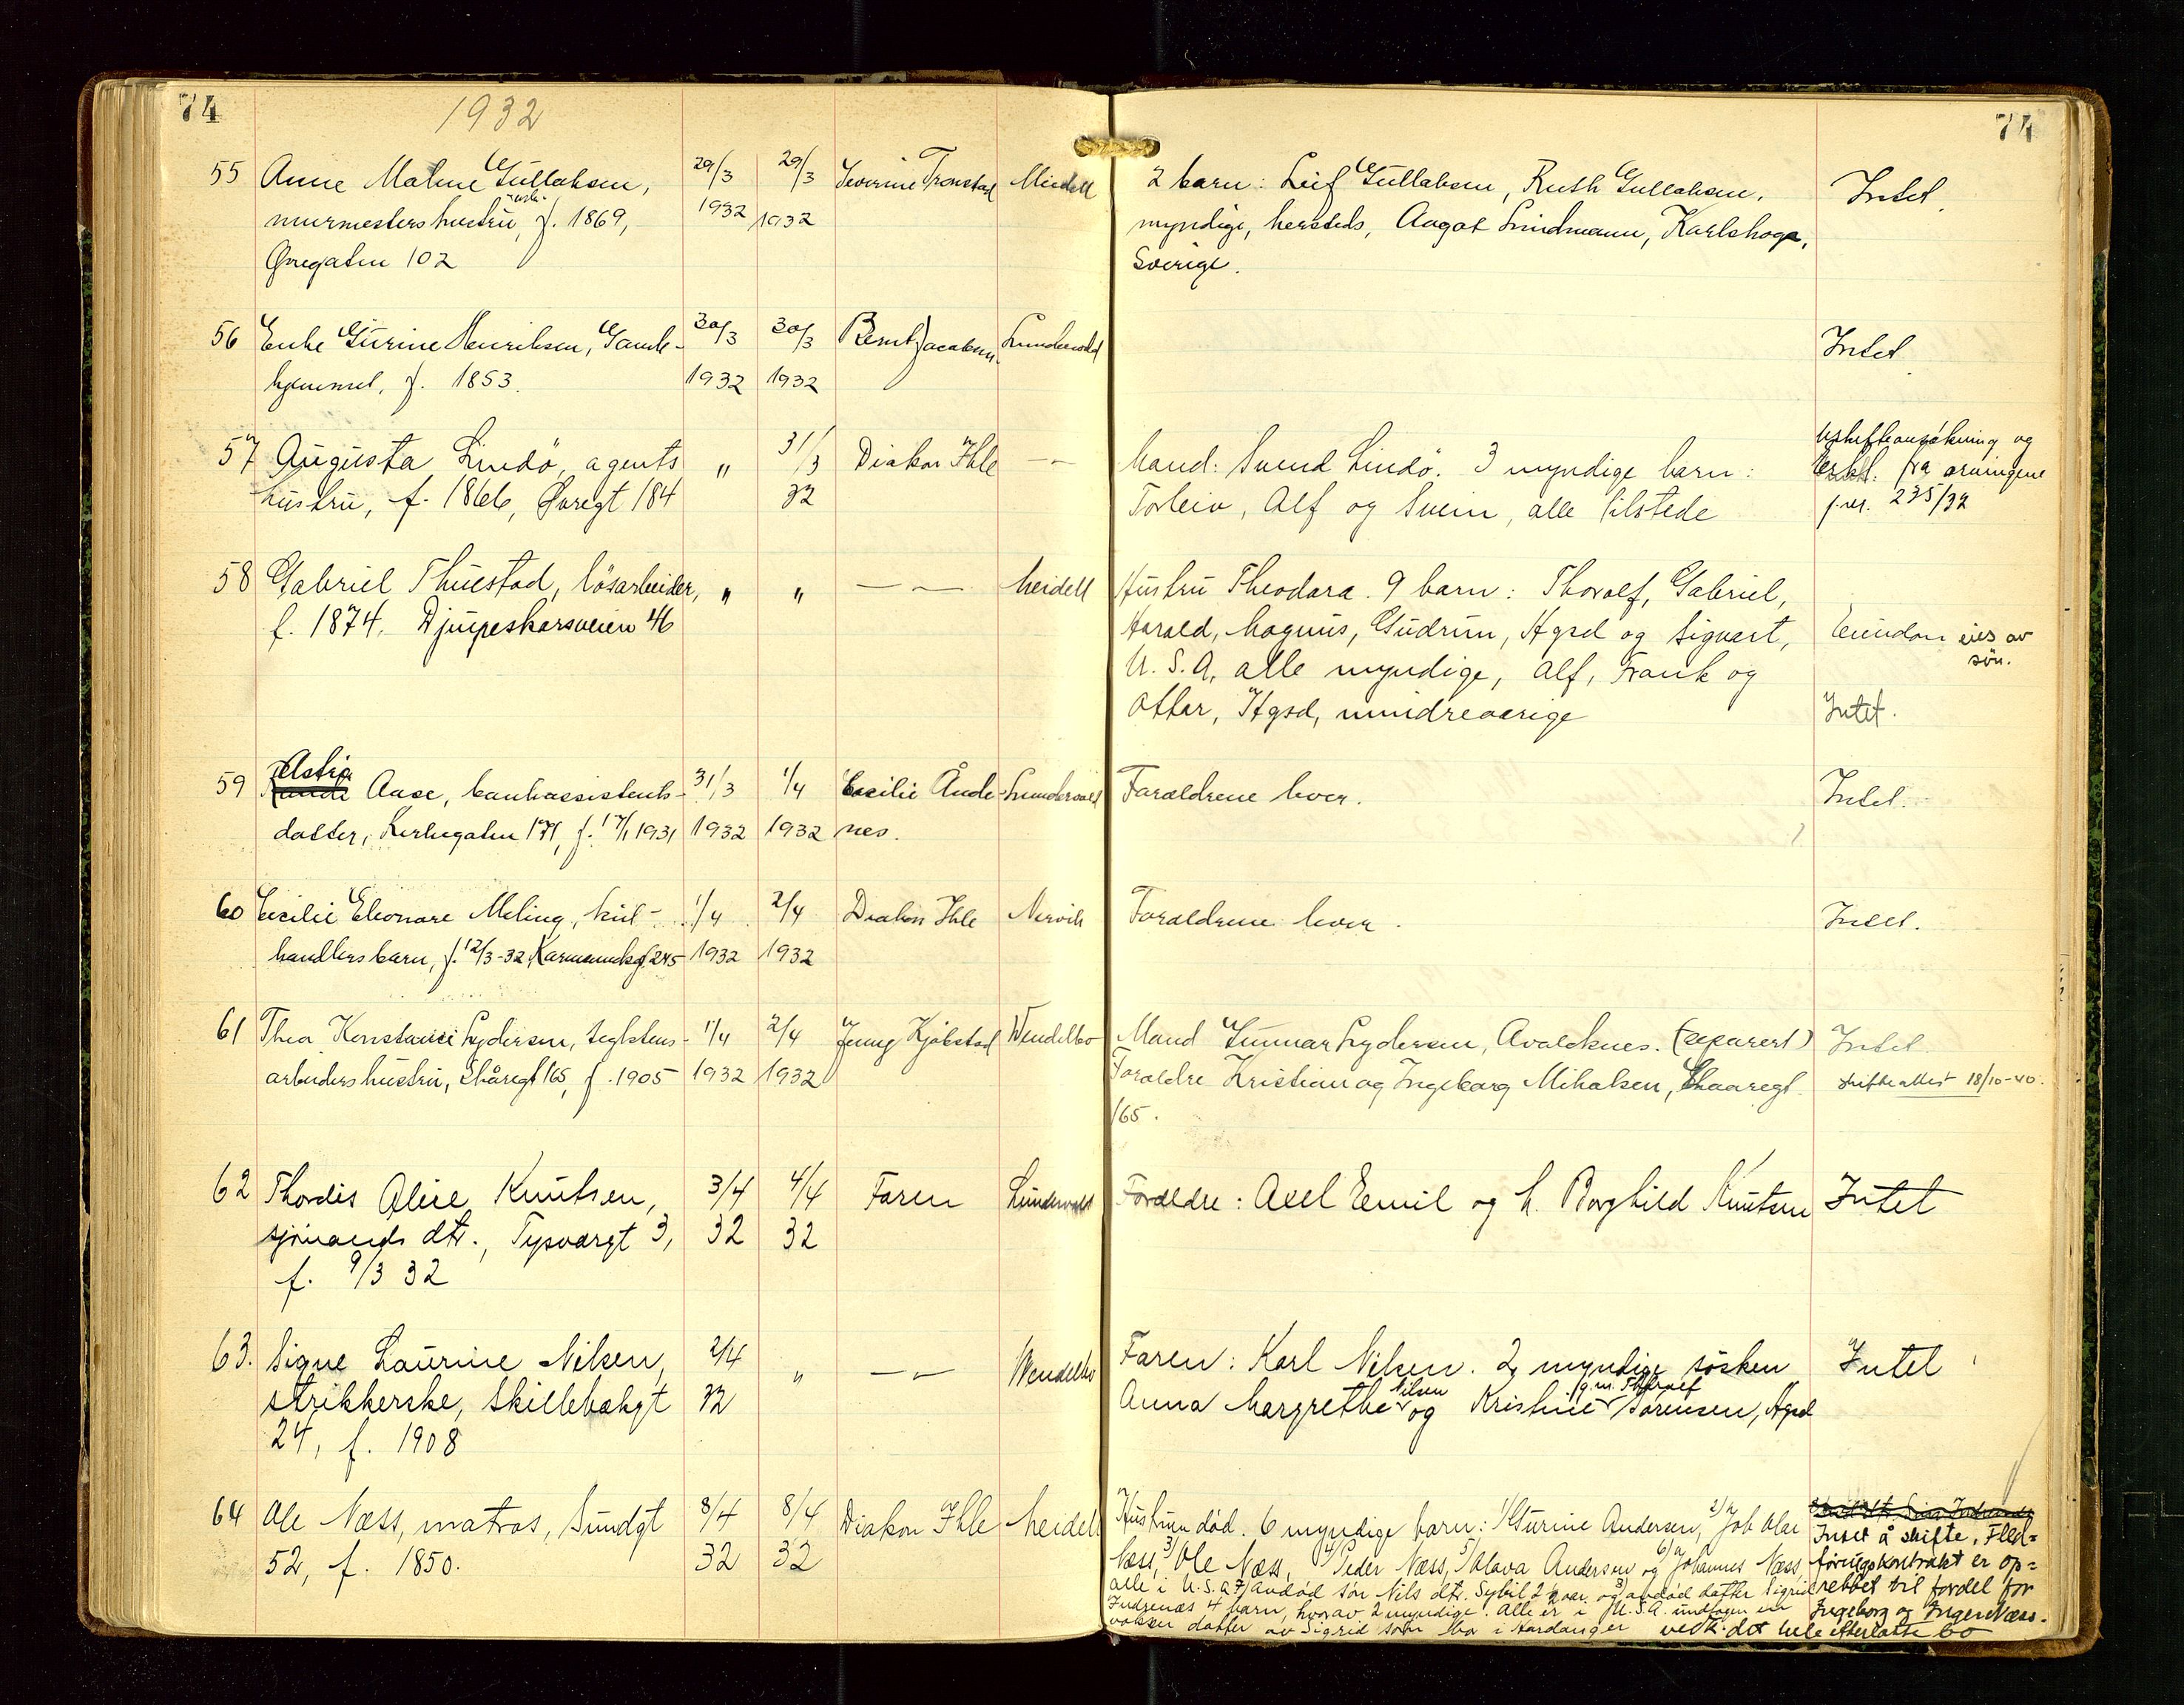 74
1932
74
55 Anne Malene Gullaksen, 29/3 29/3 Severine Tronstad Meidell
murmesters hustru, f. 1869, 1932 1932
Øvregaten 102
2 barn: Leif Gullaksen, Ruth Gullaksen,
myndige, hersteds, Aagot Lindmann, Karlskoga,
Sverige.
Intet.
56 Enke Gurine Henriksen, Gamle- 30/3 30/3 Bernt Jacobsen Lundervold
hjemmet, f. 1853. 1932 1932
Intet
57 Augusta Lindö, agents " 31/3 Diakon Ihle — " —
hustru, f. 1866, Øvregt 184 32
Mand: Svend Lindö. 3 myndige barn:
Torleiv, Alf og Svein, alle tilstede
og
fra arvingene
j.nr. 235/32
58 Gabriel Thuestad, lösarbeider, " " — " — Meidell
f. 1874, Djupeskarsveien 46
Hustru Theodora. 9 barn: Thoralf, Gabriel,
Harald, Magnus, Gudrun, Hgsd og Sigvart,
U.S.A, alle myndige, Alf, Frank og
Ottar, Hgsd, mindreaarige
Eiendom eies av
søn.
Intet.
59 Astri Aase, bankassistents- 31/3 1/4 Cecilie Ånde- Lundervold
datter, Kirkegaten 171, f. 17/1 1931 1932 1932 nes.
Forældrene lever.
Intet.
60 Cecilie Eleonore Meling, kul- 1/4 2/4 Diakon Ihle Nervik
handlers barn, f. 12/3-32, Karmsundsg. 245 1932 1932
Forældrene lever.
Intet.
61 Thea Konstanse Lydersen, teglstens- 1/4 2/4 Jenny Kjøkstad Wendelbo
arbeiders hustru, Skåregt 165, f. 1905 1932 1932
Mand Gunnar Lydersen, Avaldsnes. (separert)
Forældre Kristian og Ingeborg Mikalsen, Skaaregt.
165.
Intet
skifteattest 18/10-40.
62 Thordis Alise Knutsen, 3/4 4/4 Faren Lundervold
sjømands dtr., Tysværgt 3, 32 32
f. 9/3 32
Forældre: Axel Emil og h. Borghild Knutsen
Intet
63. Signe Laurine Nilsen, 2/4 " — " — Wendelbo
strikkerske, Skillebækgt 32
24, f. 1908
Faren: Karl Nilsen. 2 myndige søsken
Nilsen g.m. Thoralf
Anna Margrethe og Kristine Sørensen, Hgsd
Intet
64 Ole Næss, matros, Sundgt 8/4 8/4 Diakon Ihle Meidell
52, f. 1850. 32 32
Hustrun död. 6 myndige barn: 1) Gurine Andersen, 2) Job Olai
Næss, 3) Ole Næss, 4) Peder Næss, 5) Olava Andersen og 6) Johannes Næss,
alle i U.S.A. 7) avdød søn Nils dtr. Sybil 2½ aar og 8) avdød datter Sigrid
Indrenæs 4 barn, hvorav 2 myndige. Alle er i U.S.A. undtagen en
voksen datter av Sigrid som bor i Hardanger
Intet å skifte. Flød-
føringskontrakt er op-
rettet til fordel for
Ingeborg og Inger Næss.
vedk. det hele efterlatte bo